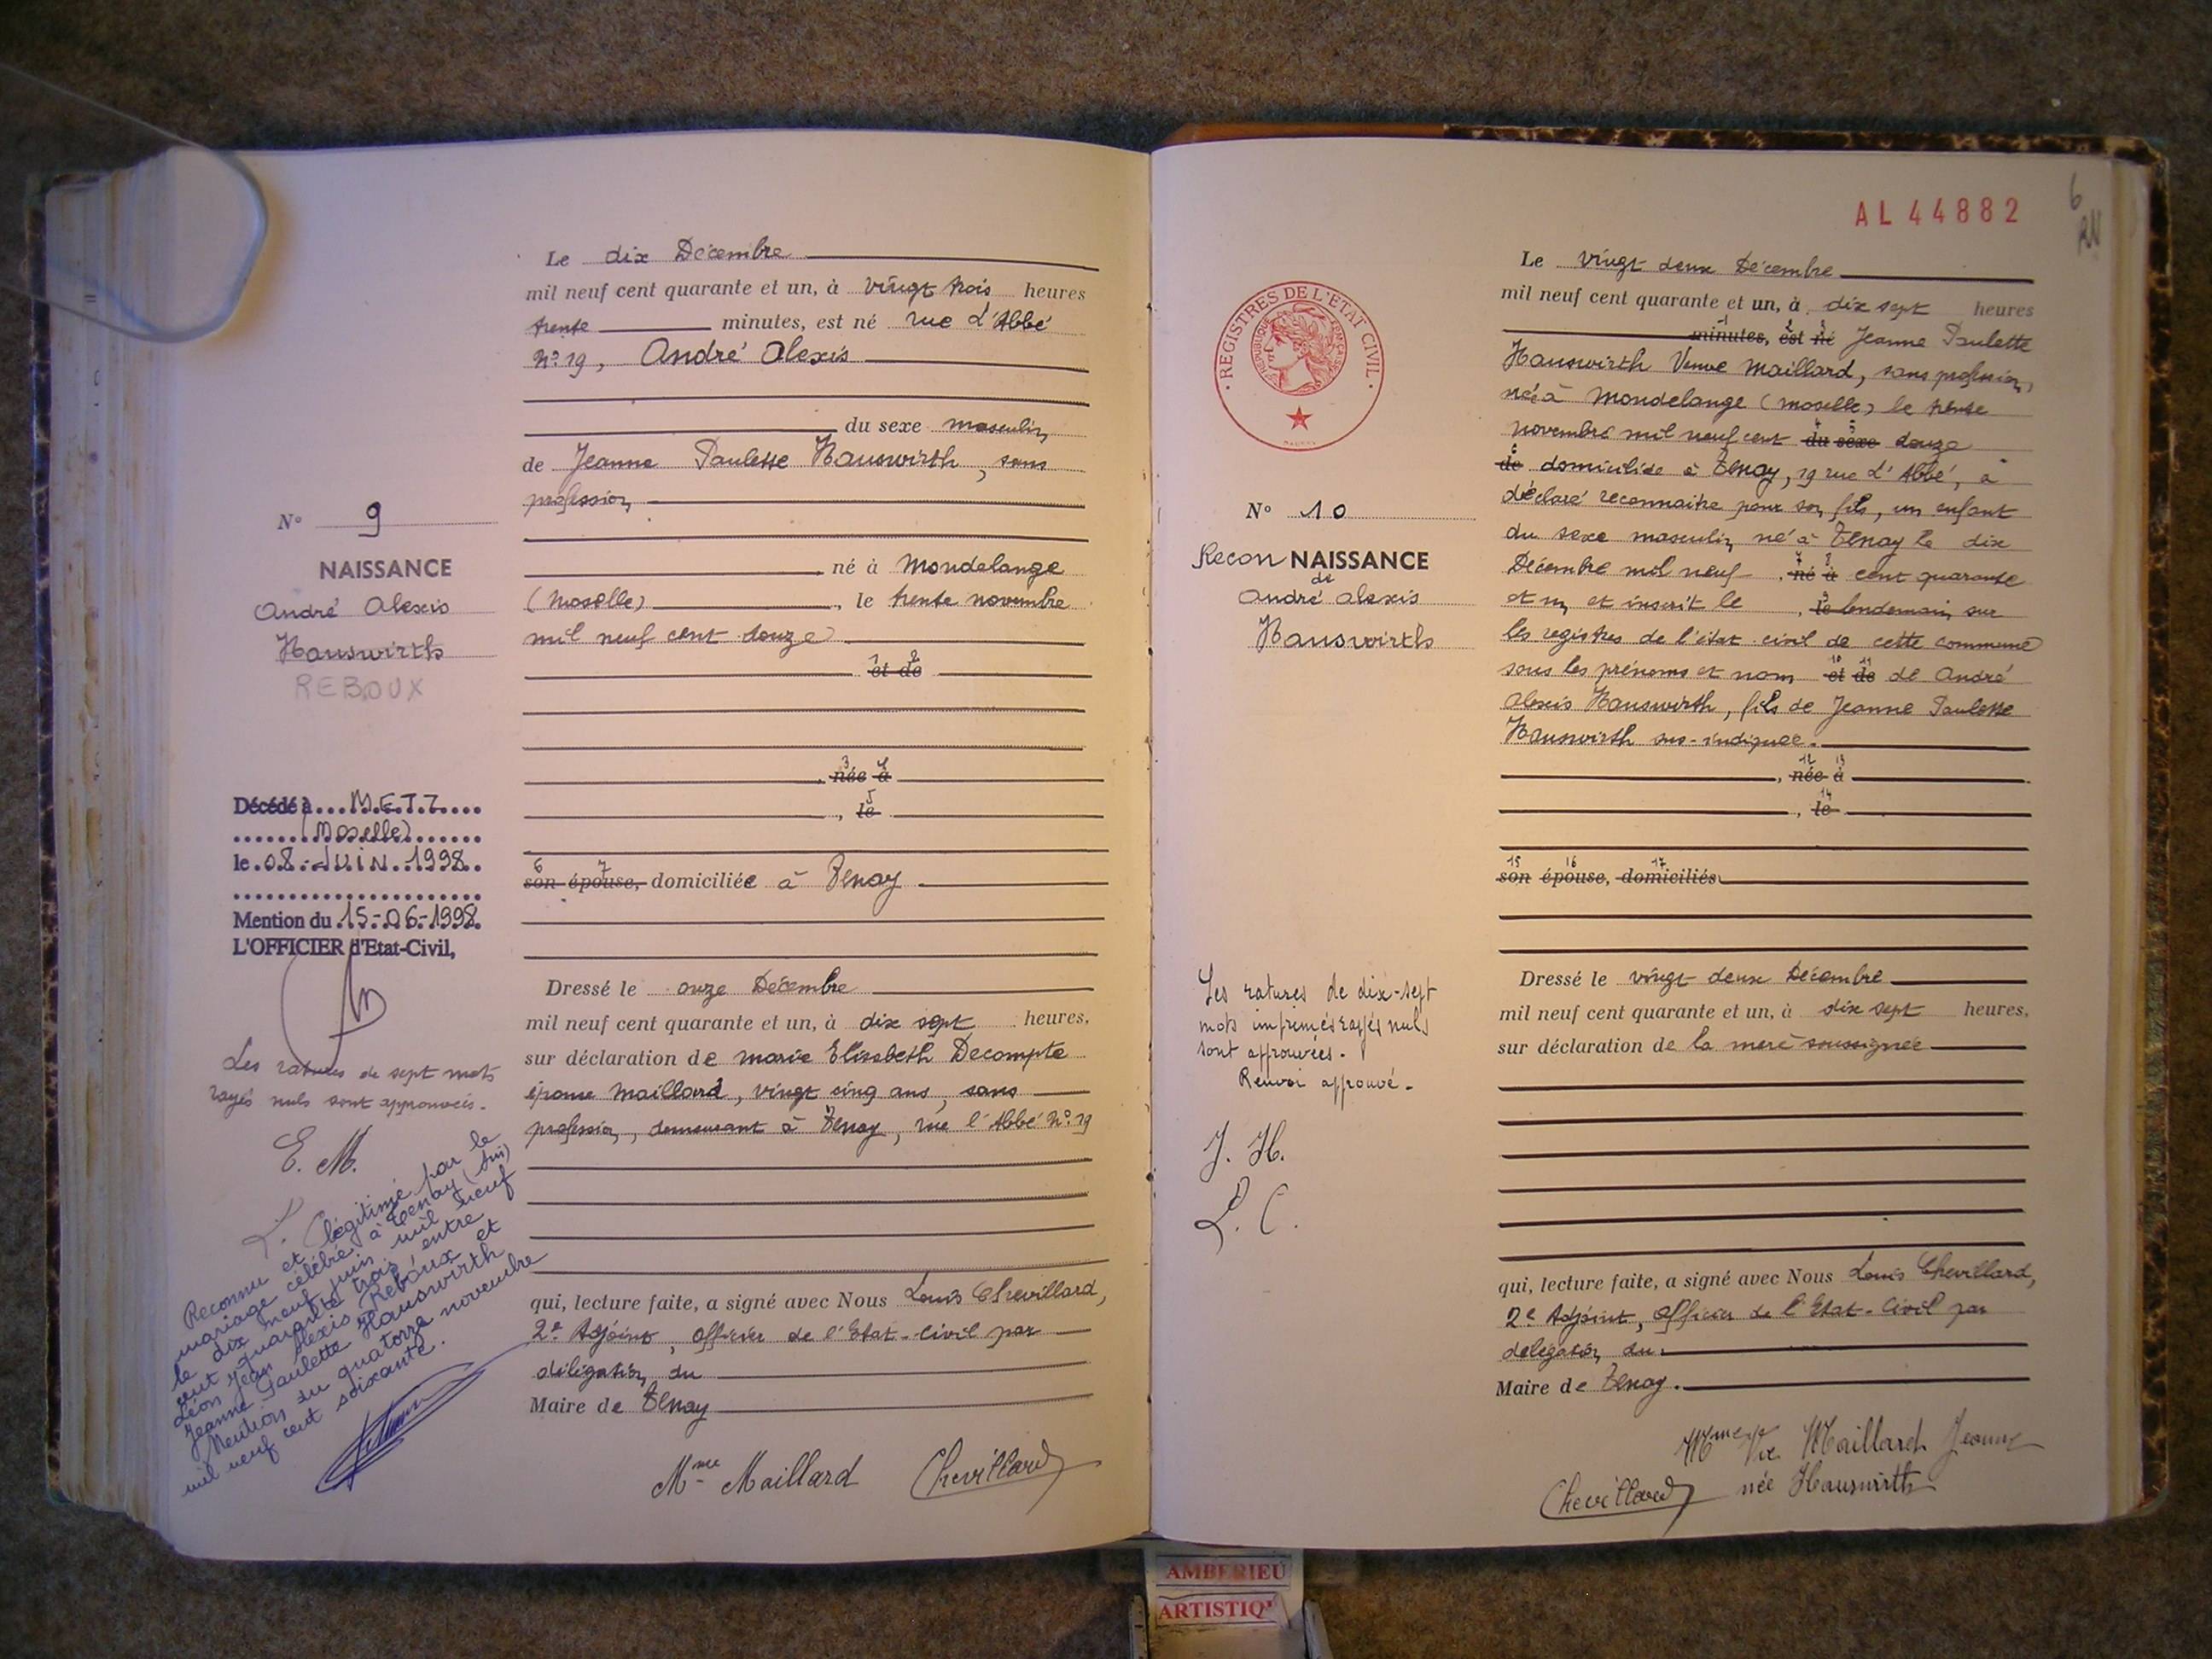 Le dix Décembre
mil neuf cent quarante et un, à vingt trois heures
trente minutes, est né rue L'Abbé
N° 19, André Alexis
du sexe masculin
de Jeanne Paulette Hauswirth, sans
profession
né à Mondelange
(Moselle), le trente novembre
mil neuf cent douze
1 2
et de
3 4
, née à
5
, le
6 7
son épouse, domiciliée à Tenay
Dressé le onze Décembre
mil neuf cent quarante et un, à dix sept heures,
sur déclaration de Marie Elisabeth Decompte
épouse Maillard, vingt cinq ans, sans
profession, demeurant à Tenay, rue l'Abbé N° 19
qui, lecture faite, a signé avec Nous Louis Chevillard,
2e Adjoint, officier de l'Etat-Civil par
délégation du
Maire de Tenay
Mme Maillard Chevillard
N° 9
NAISSANCE
André Alexis
Hauswirth
REBOUX
Décédé à METZ
(Moselle)
le 08 JUIN 1998
Mention du 15-06-1998
L'OFFICIER d'Etat-Civil,
Les ratures de sept mots
rayés nuls sont approuvées.
E. M.
Reconnu et légitimé par le
mariage célébré à Tenay (Ain)
le dix neuf juin mil neuf
cent quarante trois entre
Léon Jean Alexis Reboux et
Jeanne Paulette Hauswirth
Mention du quatorze novembre
mil neuf cent soixante.
AL 44882
6
REGISTRES DE L'ETAT CIVIL
REPUBLIQUE FRANÇAISE
N° 10
Recon NAISSANCE
de
André Alexis
Hauswirth
Le vingt deux Décembre
mil neuf cent quarante et un, à dix sept heures
1 2 3
minutes, est né Jeanne Paulette
Hauswirth Veuve Maillard, sans profession,
née à Mondelange (Moselle) le trente
4 5
novembre mil neuf cent du sexe douze
6
de domiciliée à Tenay, 19 rue L'Abbé, a
déclaré reconnaitre pour son fils, un enfant
du sexe masculin né à Tenay le dix
7 8
Décembre mil neuf , né à cent quarante
9
et un et inscrit le , le lendemain sur
les registres de l'état civil de cette commune
10 11
sous les prénoms et nom et de de André
Alexis Hauswirth, fils de Jeanne Paulette
Hauswirth sus-indiquée.
12 13
, née à
14
, le
15 16 17
son épouse, domiciliés
Dressé le vingt deux Décembre
mil neuf cent quarante et un, à dix sept heures,
sur déclaration de la mère soussignée
qui, lecture faite, a signé avec Nous Louis Chevillard,
2e Adjoint, Officier de l'Etat-Civil par
délégation du
Maire de Tenay.
Mme Vve Maillard Jeanne
née Hauswirth
Chevillard
Les ratures de dix-sept
mots imprimés rayés nuls
sont approuvées.
Renvoi approuvé.
J. H.
L. C.
AMBERIEU
ARTISTIQ